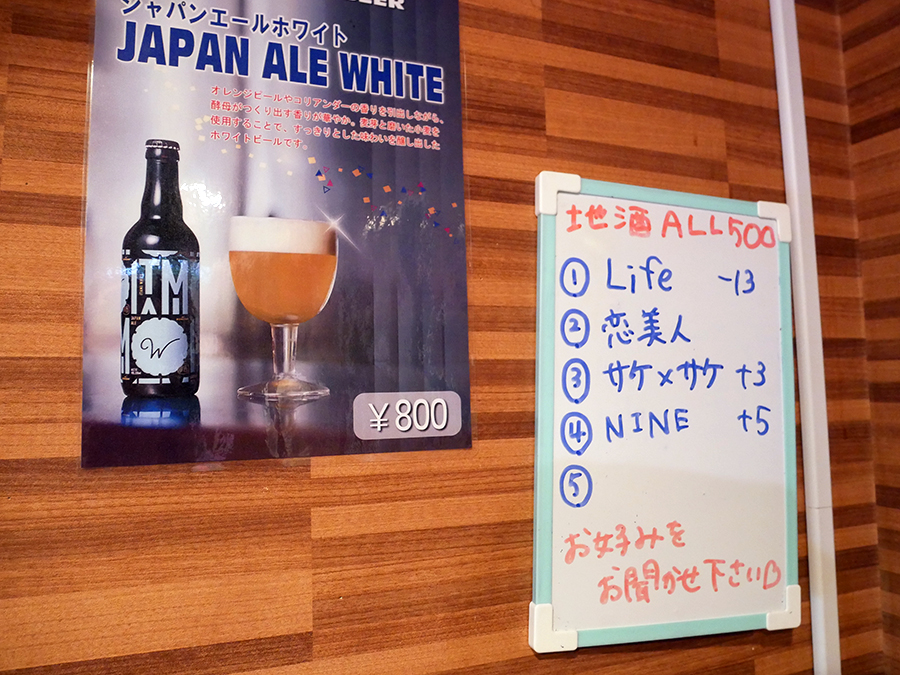 ジャパンエールホワイト
JAPAN ALE WHITE
オレンジピールやコリアンダーの香りを引出しながら、
酵母がつくり出す香りが華やか。麦芽と磨いた小麦を
使用することで、すっきりとした味わいを醸し出した
ホワイトビールです。
W
¥800
地酒 ALL500
① Life -13
② 恋美人
③ サケ×サケ +3
④ NINE +5
⑤
お好みを
お聞かせ下さい